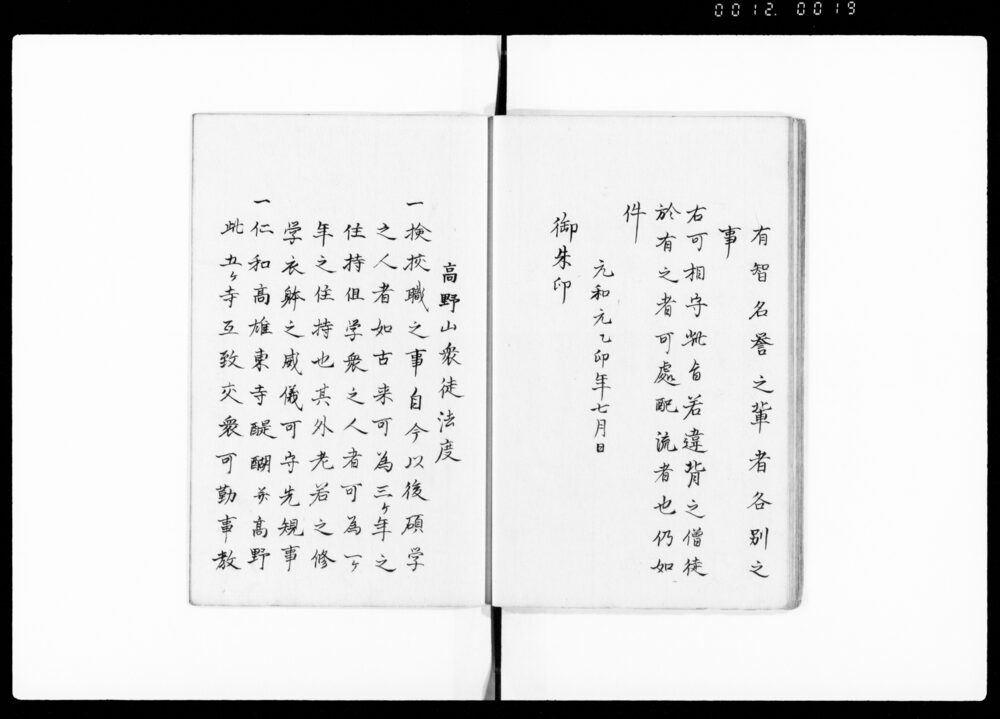 0012. 0019
有智名誉之輩者各別之
事
右可相守此旨若違背之僧徒
於有之者可處配流者也仍如
件
元和元乙卯年七月日
御朱印
高野山衆徒法度
一撿挍職之事自今以後碩学
之人者如古来可為三ヶ年之
住持但学衆之人者可為一ヶ
年之住持也其外老若之修
学衣躰之威儀可守先規事
一仁和高雄東寺醍醐并高野
此五ヶ寺互致交衆可勤事教